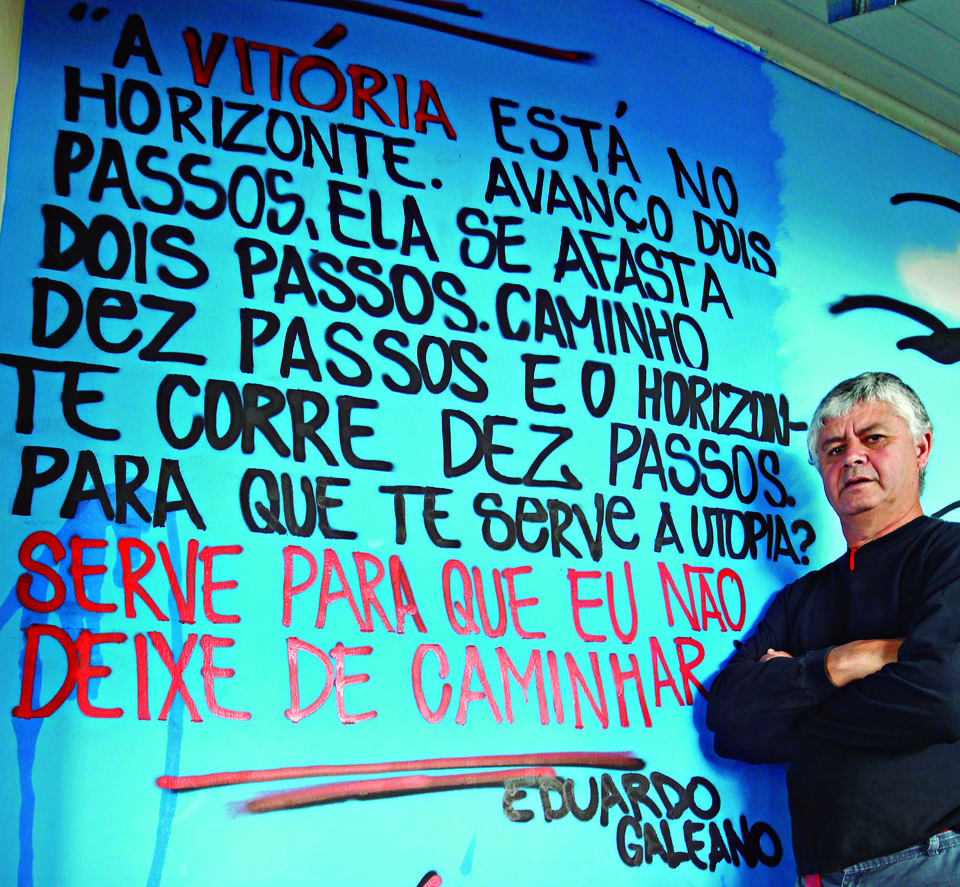 "A VITÓRIA ESTÁ NO
HORIZONTE. AVANÇO DOIS
PASSOS, ELA SE AFASTA
DOIS PASSOS. CAMINHO
DEZ PASSOS E O HORIZON-
TE CORRE DEZ PASSOS.
PARA QUE TE SERVE A UTOPIA?
SERVE PARA QUE EU NÃO
DEIXE DE CAMINHAR
EDUARDO
GALEANO